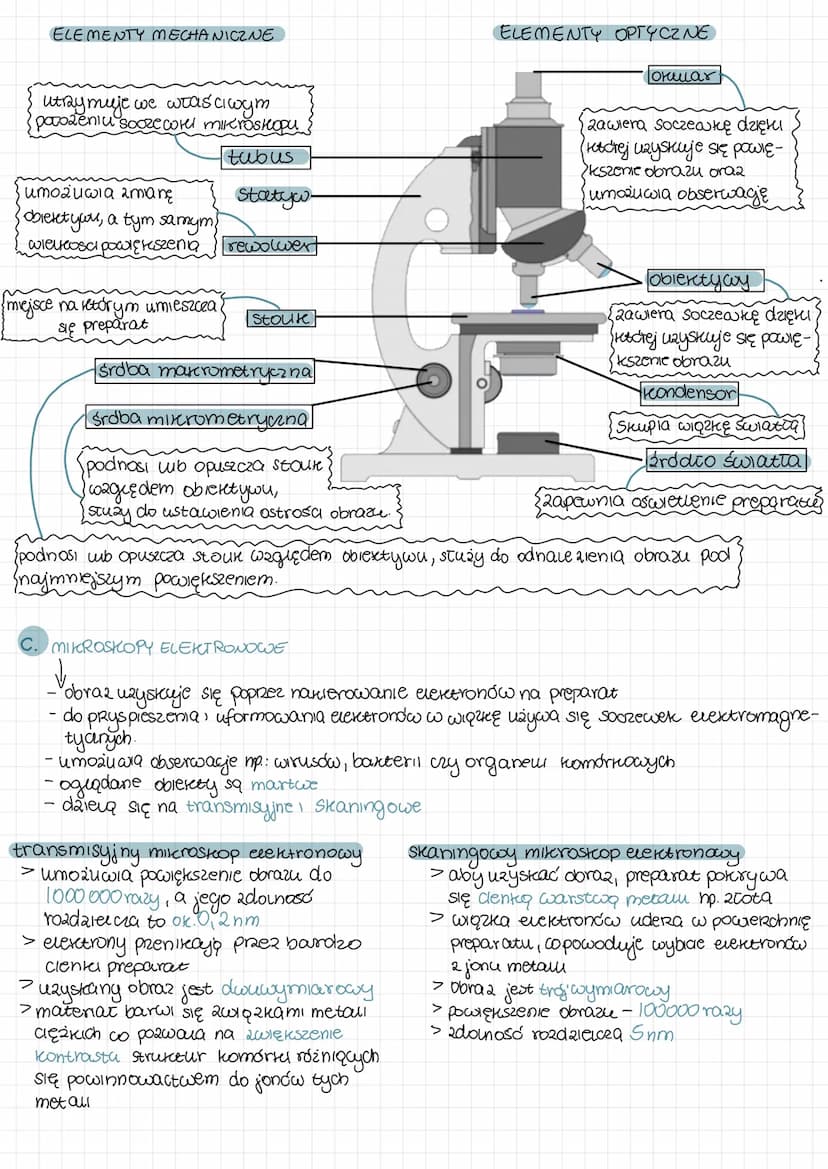 ELEMENTY MECHANICZNE
utrzymuje we właściwym
położeniu soczewki mikroskopu
tubus
statyw
umożliwia zmianę
obiektywu, a tym samym
wielkości powiększenia
rewolwer
miejsce na którym umieszcza
się preparat
stolik
śrdba makrometryczna
śrdba mikrometryczna
podnosi lub opuszcza stolik
względem obiektywu,
służy do ustawienia ostrości obrazu.
podnosi lub opuszcza stolik względem obiektywu, służy do odnalezienia obrazu pod
najmniejszym powiększeniem.
ELEMENTY OPTYCZNE
okular
zawiera soczewkę dzięki
której uzyskuje się powię-
kszenie obrazu oraz
umożliwia obserwację
obiektywy
zawiera soczewkę dzięki
której uzyskuje się powię-
kszenie obrazu
kondensor
skupia wiązkę światła
źródło światła
zapewnia oświetlenie preparatu
C. MIKROSKOPY ELEKTRONOWE
- obraz uzyskuje się poprzez nakierowanie elektronów na preparat
- do przyspieszenia i uformowania elektronów w wiązkę używa się soczewek elektromagne-
tycznych.
- umożliwia obserwacje np.: wirusów, bakterii czy organelli komórkowych
- oglądane obiekty są martwe
- dzielą się na transmisyjne i skaningowe
transmisyjny mikroskop elektronowy
> umożliwia powiększenie obrazu do
1000 000 razy, a jego zdolność
rozdzielcza to ok. 0,2 nm
> elektrony przenikają przez bardzo
cienki preparat
> uzyskany obraz jest dwuwymiarowy
> materiał barwi się związkami metali
ciężkich co pozwala na zwiększenie
kontrastu struktur komórki różniących
się powinnowactwem do jonów tych
metali
skaningowy mikroskop elektronowy
> aby uzyskać obraz, preparat pokrywa
się cienką warstwą metalu np. złota
> wiązka elektronów udera w powierzchnię
preparatu, co powoduje wybicie elektronów
z jonu metalu
> obraz jest trójwymiarowy
> powiększenie obrazu - 100000 razy
> zdolność rozdzielcza 5 nm